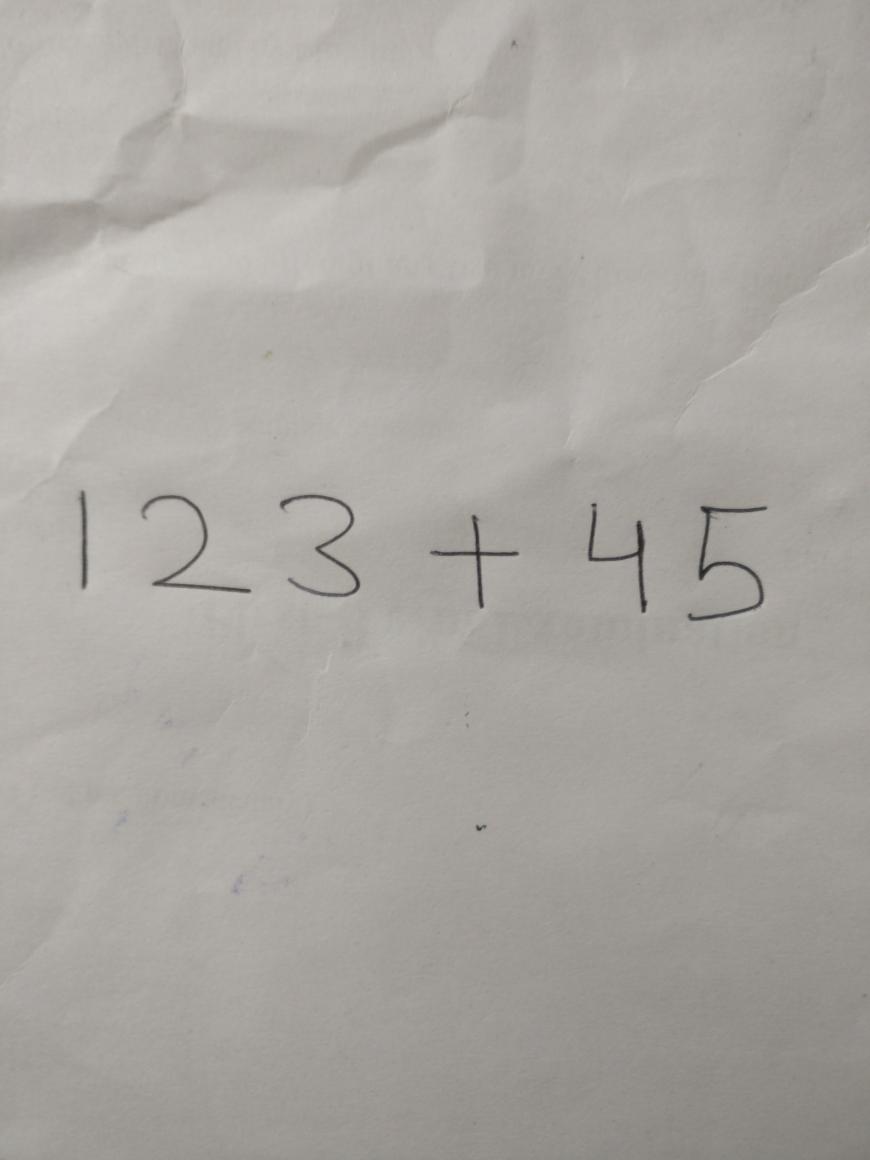 123 + 45